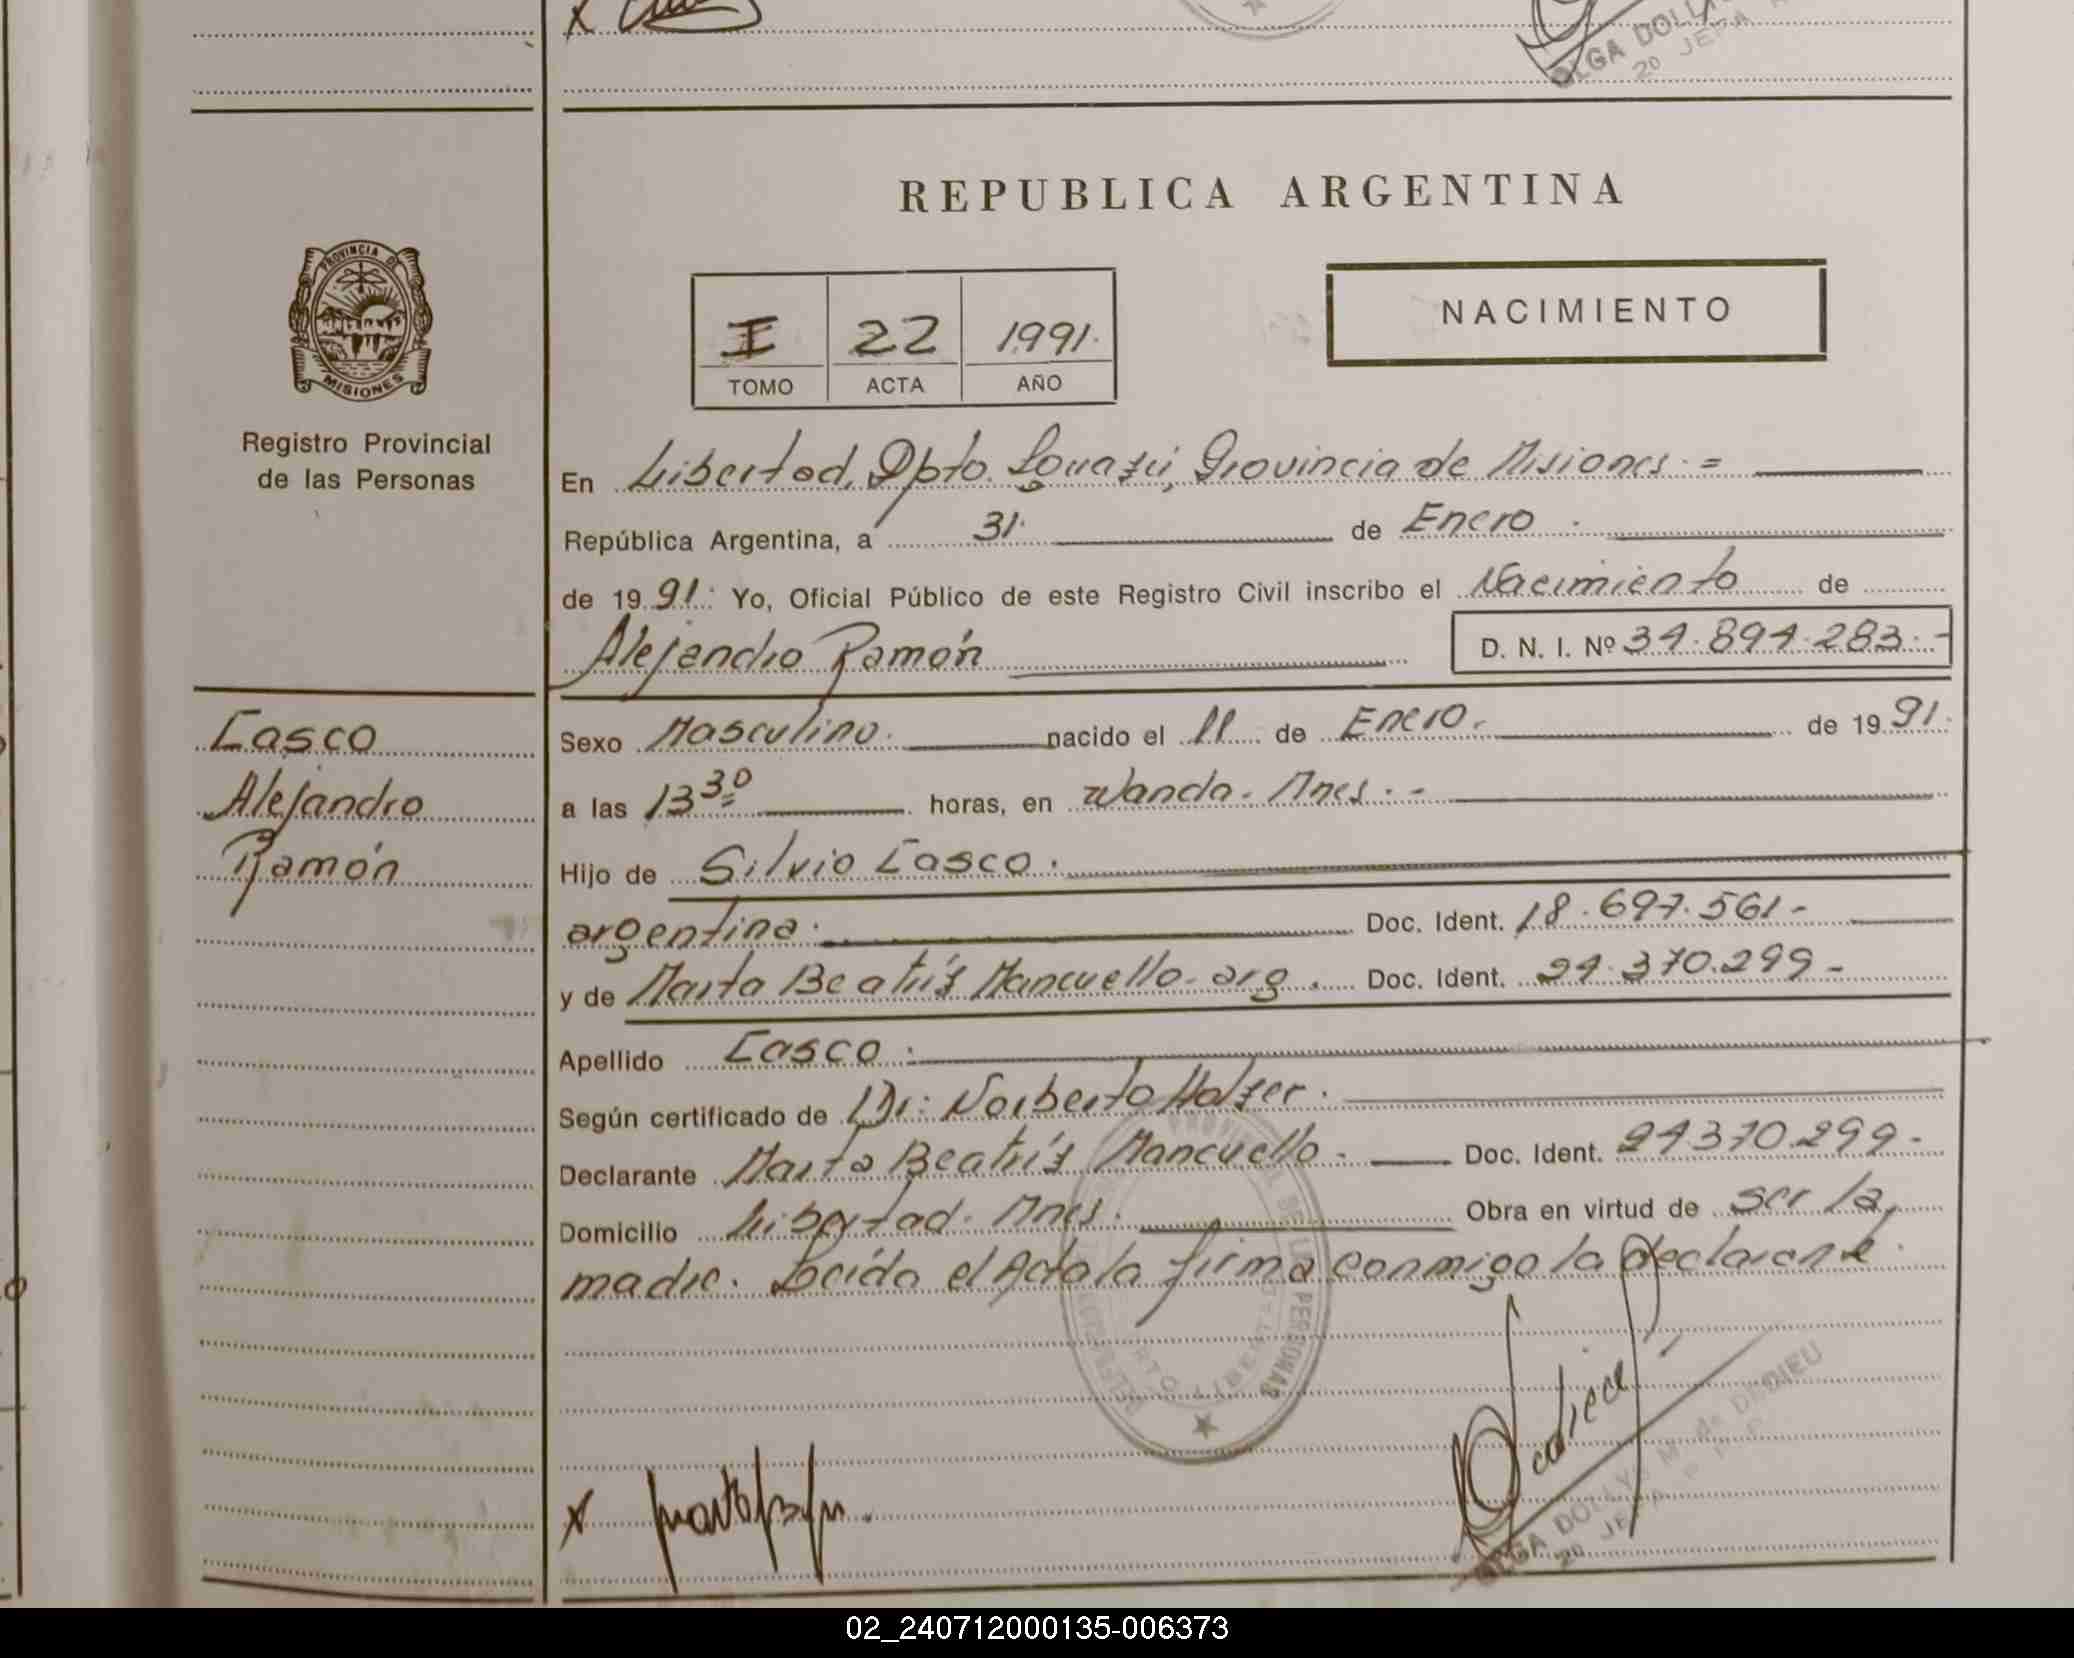 OLGA DOLLY
2º JEFA
REPUBLICA ARGENTINA
PROVINCIA DE
MISIONES
Registro Provincial
de las Personas
I 22 1991.
TOMO ACTA AÑO
NACIMIENTO
En Libertad, Dpto. Iguazú, Provincia de Misiones. =
República Argentina, a 31. de Enero.
de 1991. Yo, Oficial Público de este Registro Civil inscribo el Nacimiento de
Alejandro Ramón D. N. I. Nº 34.894.283.-
Casco
Alejandro
Ramón
Sexo Masculino. nacido el 11 de Enero. de 1991.
a las 13 30 horas, en Wanda. Mnes. -
Hijo de Silvio Casco.
argentina. Doc. Ident. 18.697.561-
y de Marta Beatríz Mancuello- arg. Doc. Ident. 24.370.299-
Apellido Casco.
Según certificado de Dr: Norberto Holzer.
Declarante Marta Beatríz Mancuello- Doc. Ident. 24370.299-
Domicilio Libertad. Mnes. Obra en virtud de ser la
madre. Leída el Acta la firma conmigo la declarante.
PROVINCIAL DE LAS PERSONAS
OLGA DOLLY M. de DEDIEU
2º JEFA R. P. P.
02_240712000135-006373